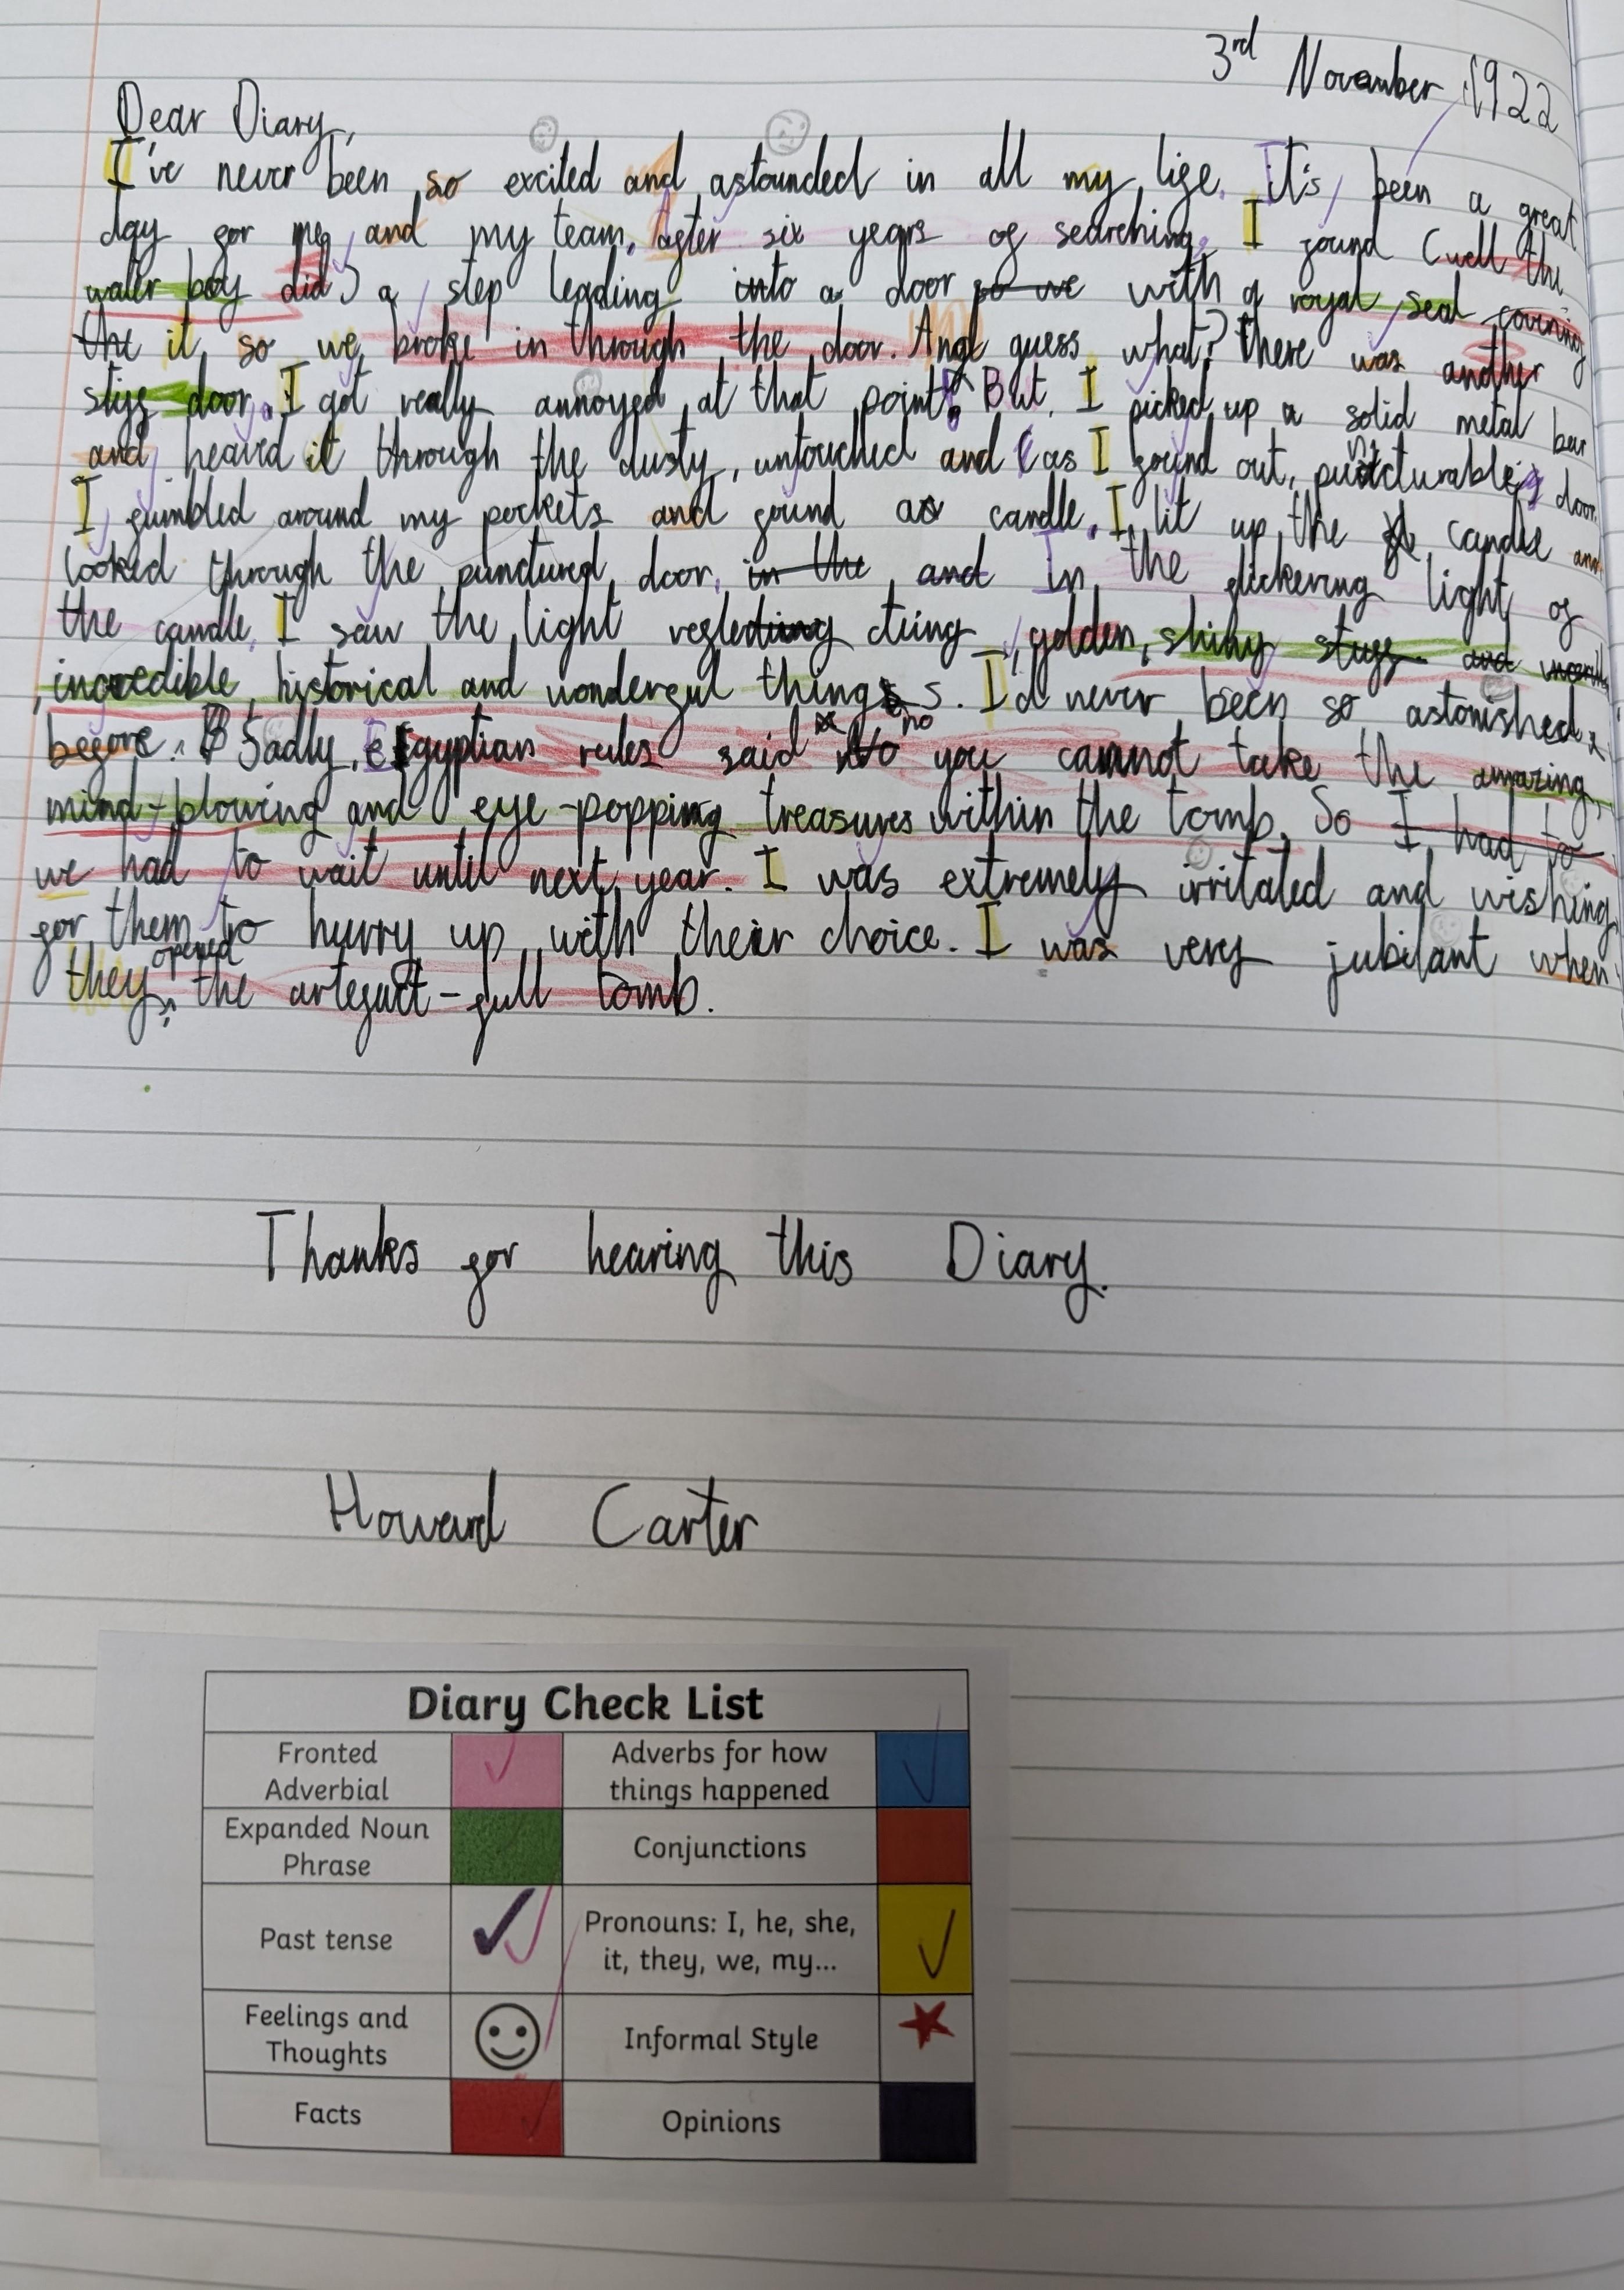 3rd November 1922
Dear Diary,
I've never been so excited and astounded in all my life. It's been a great
day for me and my team. After six years of searching, I found (well the
water boy did) a step leading into a door so we with a royal seal covering
the it so we broke in through the door. And guess what? there was another
stiff door. I got really annoyed at that point! But I picked up a solid metal bar
and heaved it through the dusty, untouched and (as I found out, puncturable) door.
I fumbled around my pockets and found a candle. I lit up the candle and
looked through the punctured door. in the and In the flickering light of
the candle, I saw the light reflecting, golden, shiny stuff and
, incredible, historical and wonderful things. I'd never been so astonished
before. Sadly, Egyptian rules said no you cannot take the amazing,
mind-blowing and eye-popping treasures within the tomb. So I had to
we had to wait until next year. I was extremely irritated and wishing
for them to hurry up with their choice. I was very jubilant when
they opened the artefact-full tomb.
Thanks for hearing this Diary.
Howard Carter
Diary Check List
Fronted Adverbial
Adverbs for how things happened
Expanded Noun Phrase
Conjunctions
Past tense
Pronouns: I, he, she, it, they, we, my...
Feelings and Thoughts
Informal Style
Facts
Opinions